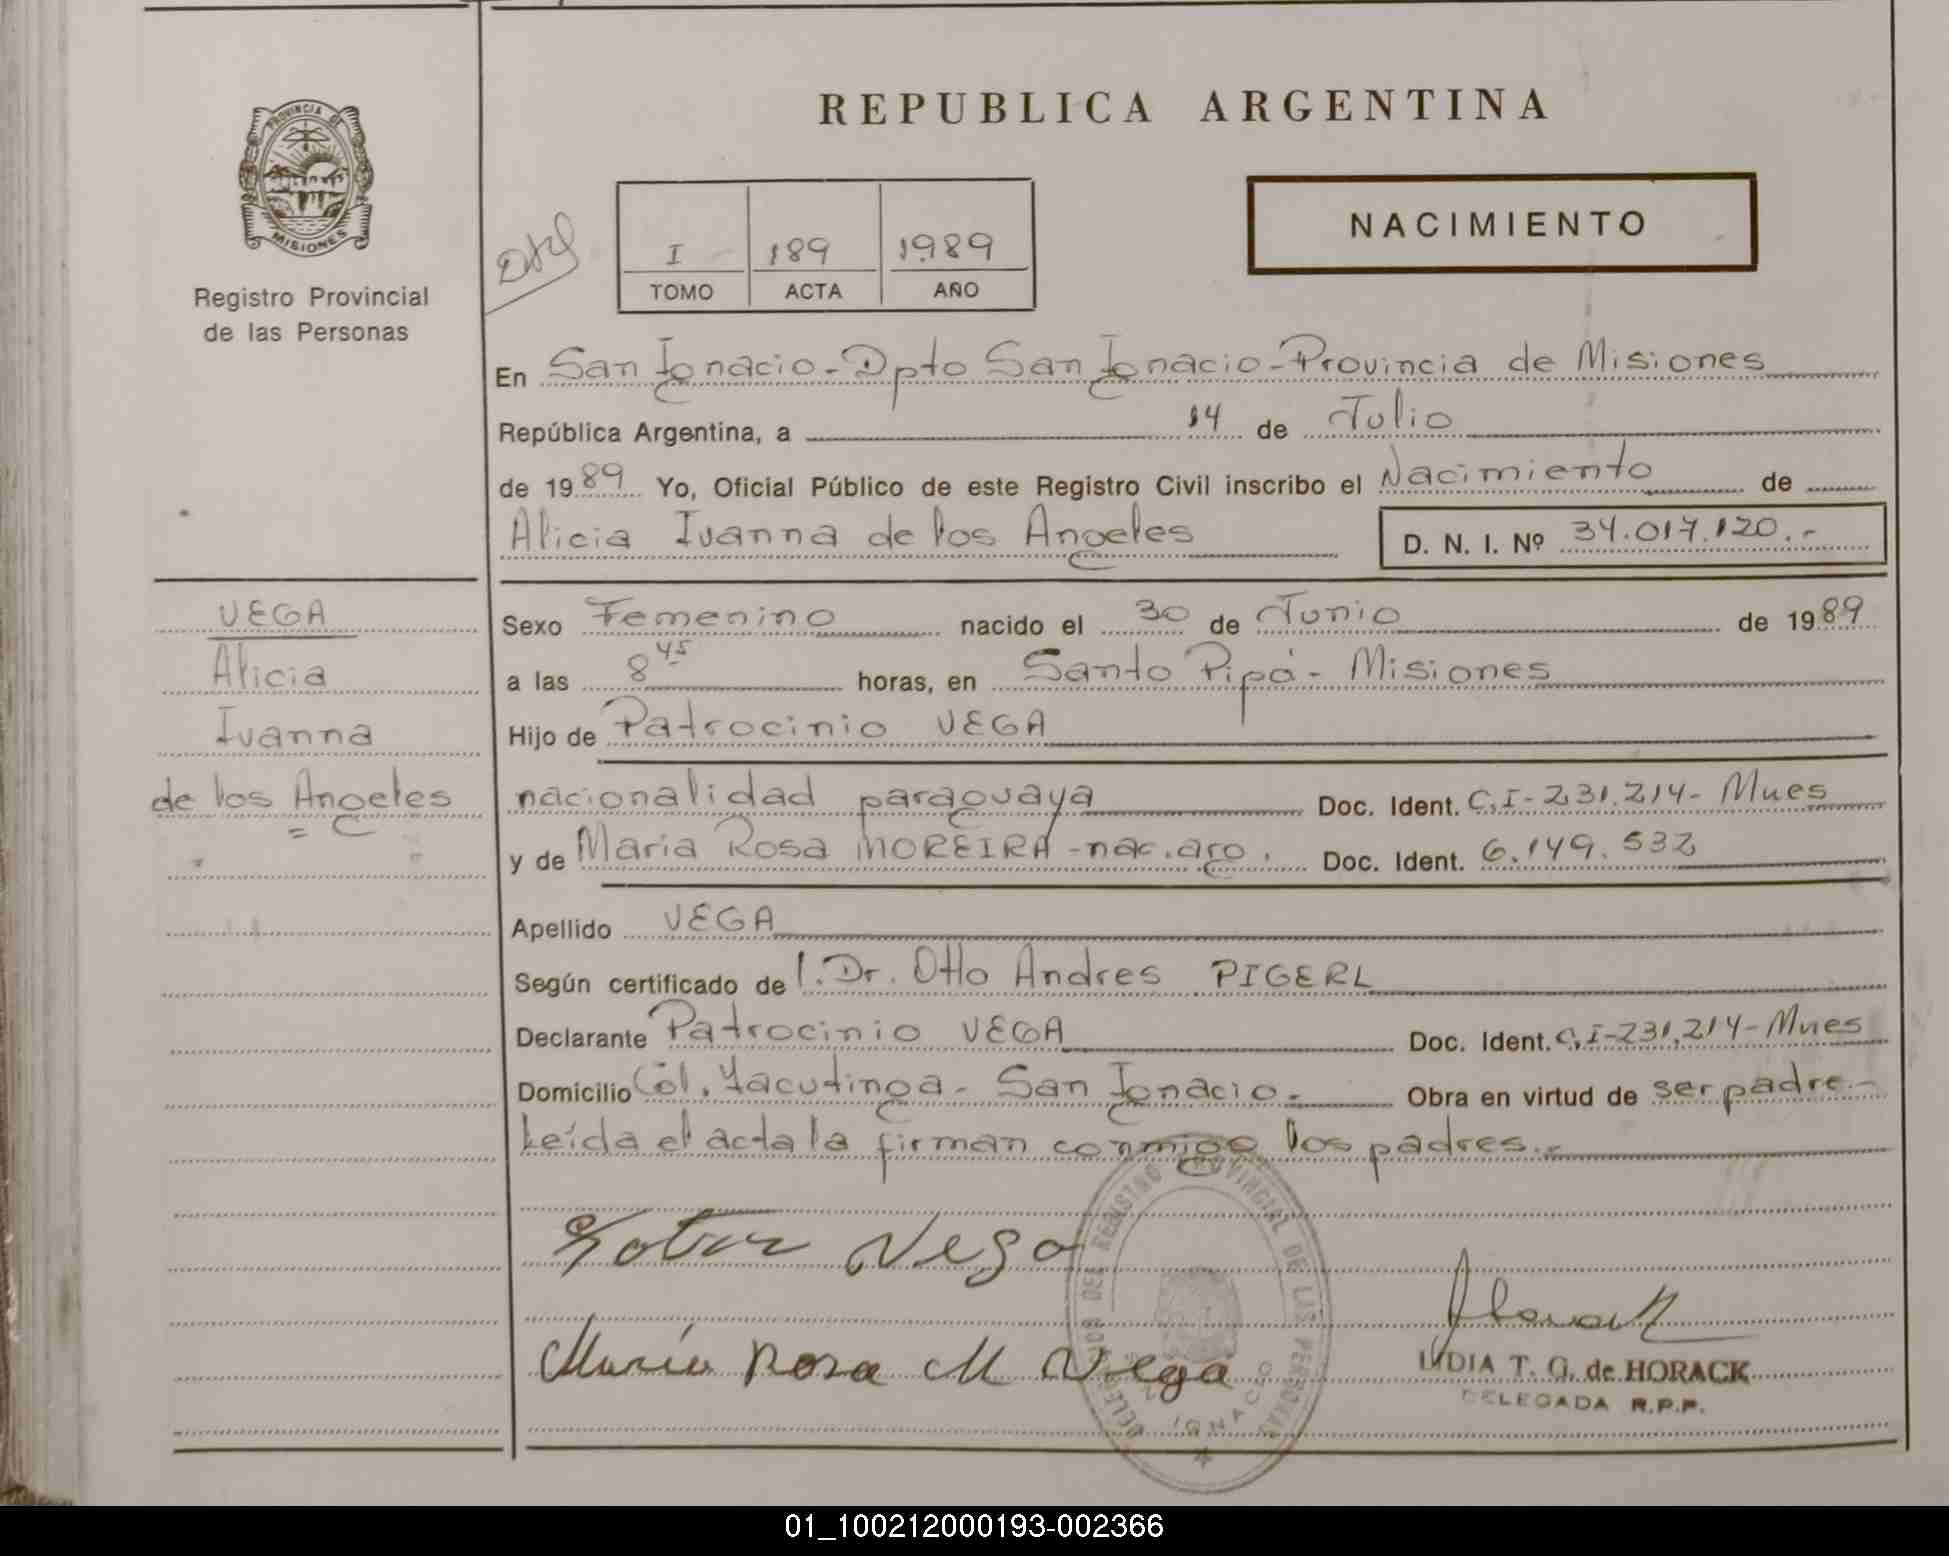 REPUBLICA ARGENTINA
PROVINCIA DE
MISIONES
Registro Provincial
de las Personas
I 189 1989
TOMO ACTA AÑO
NACIMIENTO
En San Ignacio - Dpto San Ignacio - Provincia de Misiones
República Argentina, a 14 de Julio
de 1989 Yo, Oficial Público de este Registro Civil inscribo el Nacimiento de
Alicia Ivanna de los Angeles D. N. I. Nº 34.017.120.-
VEGA
Alicia
Ivanna
de los Angeles
=
Sexo Femenino nacido el 30 de Junio de 1989
a las 8 45 horas, en Santo Pipó - Misiones
Hijo de Patrocinio VEGA
nacionalidad paraguaya Doc. Ident. C.I-231.214- Mnes
y de Maria Rosa MOREIRA - nac. arg. Doc. Ident. 6.149.532
Apellido VEGA
Según certificado de l. Dr. Otto Andres PIGERL
Declarante Patrocinio VEGA Doc. Ident. C.I-231.214- Mnes
Domicilio Col. Yacutinga - San Ignacio.- Obra en virtud de ser padre.-
Leída el acta la firman conmigo los padres.-
Vega
María Rosa M Vega
DELEGACION DEL REGISTRO PROVINCIAL DE LAS PERSONAS
SAN IGNACIO
LYDIA T. G. de HORACK
DELEGADA R.P.P.
01_100212000193-002366